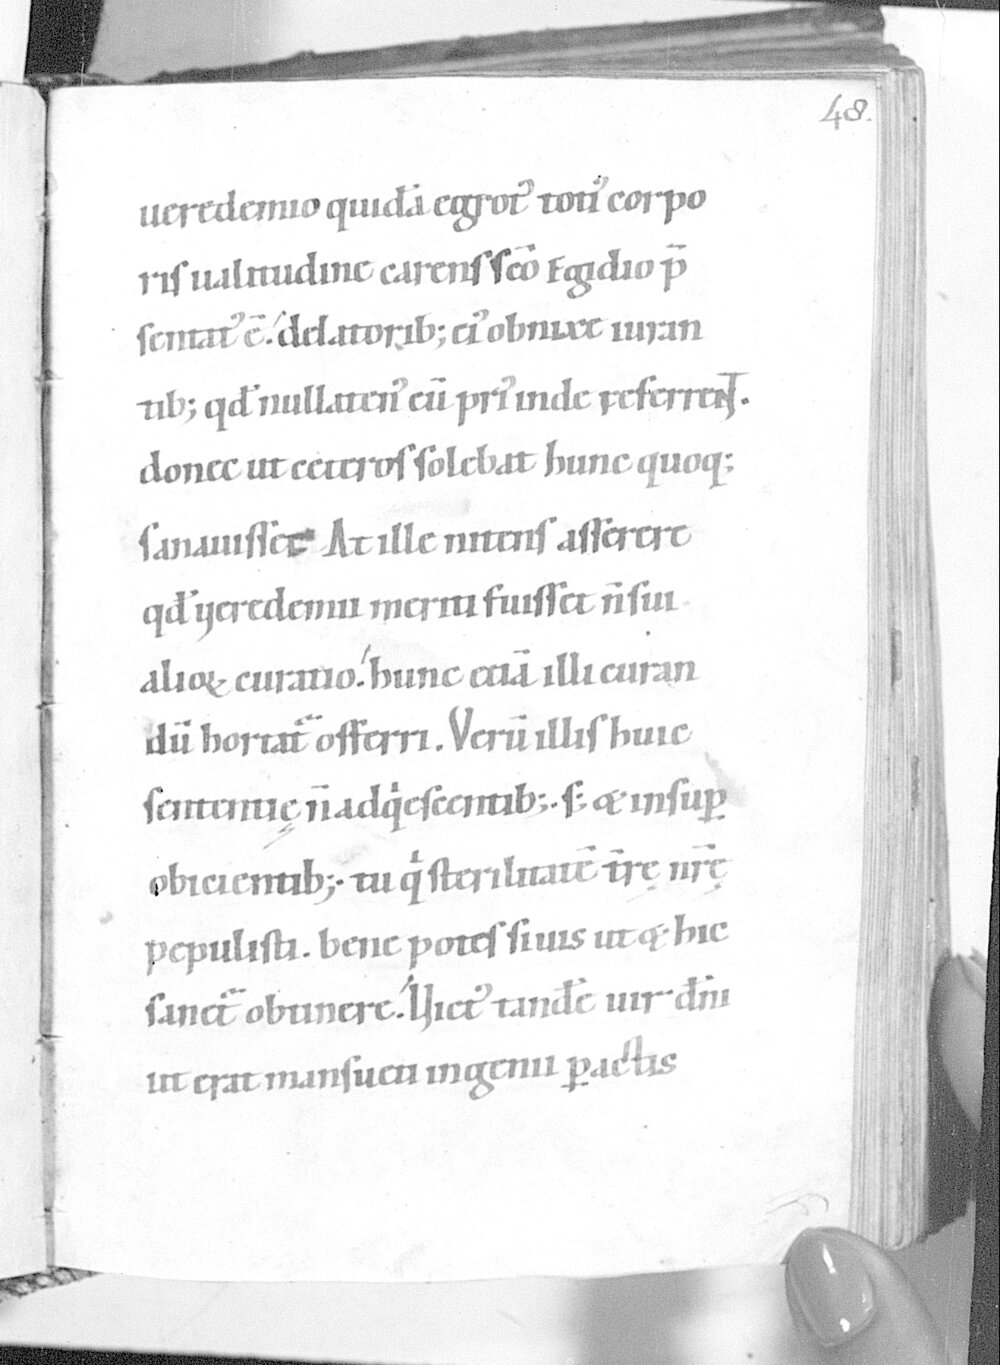 48.
ueredemio quidā egrotꝰ totiꝰ corpo
ris ualitudine carens sc̄o Egidio p̄
sentatꝰ ē. delatorib; eiꝰ obnixe iuran
tib; qđ nullatenꝰ eū priꝰ inde referrent.
donec ut ceteros solebat hunc quoq;
sanauisset At ille nitens asserere
qđ ueredemii meriti fuisset n̄ sui
alioꝝ curatio. hunc etiā illi curan
dū hortat᷒ offerri. Verū illis huic
sententię n̄ adqͥescentib;. s; & insuꝑ
obicientib;. tu qͥ sterilitatē t̄rę nr̄ę
pepulisti. bene potes si uis ut & hic
sanet᷒ obtinere. Victꝰ tandē uir dn̄i
ut erat mansueti ingenii ꝑactis